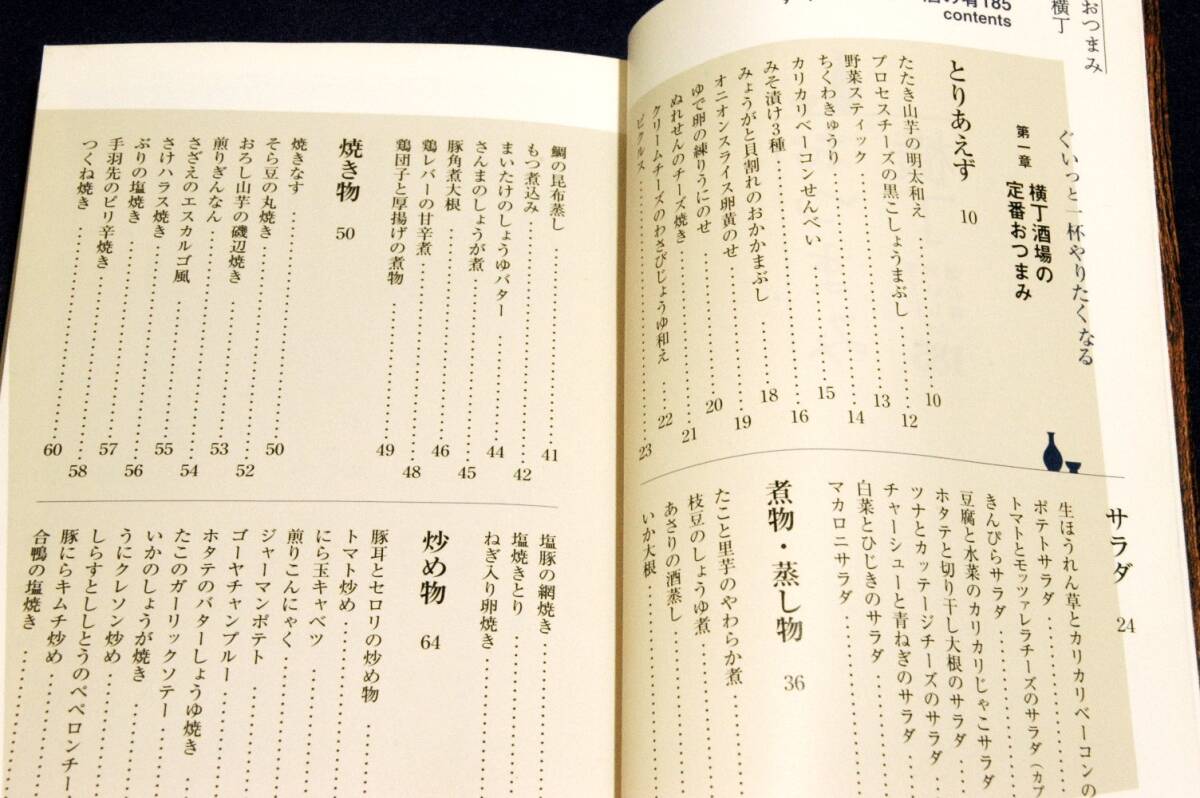 おつまみ
横丁
酒の肴185
contents
ぐいっと一杯やりたくなる
第一章 横丁酒場の
定番おつまみ
とりあえず 10
たたき山芋の明太和え 10
プロセスチーズの黒こしょうまぶし 12
野菜スティック 13
ちくわきゅうり 14
カリカリベーコンせんべい 15
みそ漬け3種 16
みょうがと貝割れのおかかまぶし 18
オニオンスライス卵黄のせ 19
ゆで卵の練りうにのせ 20
ぬれせんのチーズ焼き 21
クリームチーズのわさびじょうゆ和え 22
ピクルス 23
サラダ 24
生ほうれん草とカリカリベーコンの
ポテトサラダ
トマトとモッツァレラチーズのサラダ(カプ
きんぴらサラダ
豆腐と水菜のカリカリじゃこサラダ
ホタテと切り干し大根のサラダ
ツナとカッテージチーズのサラダ
チャーシューと青ねぎのサラダ
白菜とひじきのサラダ
マカロニサラダ
煮物・蒸し物 36
たこと里芋のやわらか煮
枝豆のしょうゆ煮
あさりの酒蒸し
いか大根
鯛の昆布蒸し 41
もつ煮込み 42
まいたけのしょうゆバター 44
さんまのしょうが煮 45
豚角煮大根 46
鶏レバーの甘辛煮 48
鶏団子と厚揚げの煮物 49
焼き物 50
焼きなす 50
そら豆の丸焼き 52
おろし山芋の磯辺焼き 53
煎りぎんなん 54
さざえのエスカルゴ風 55
さけハラス焼き 56
ぶりの塩焼き 57
手羽先のピリ辛焼き 58
つくね焼き 60
塩豚の網焼き
塩焼きとり
ねぎ入り卵焼き
炒め物 64
豚耳とセロリの炒め物
トマト炒め
にら玉キャベツ
煎りこんにゃく
ジャーマンポテト
ゴーヤチャンプルー
ホタテのバターしょうゆ焼き
たこのガーリックソテー
いかのしょうが焼き
うにクレソン炒め
しらすとししとうのペペロンチー
豚にらキムチ炒め
合鴨の塩焼き